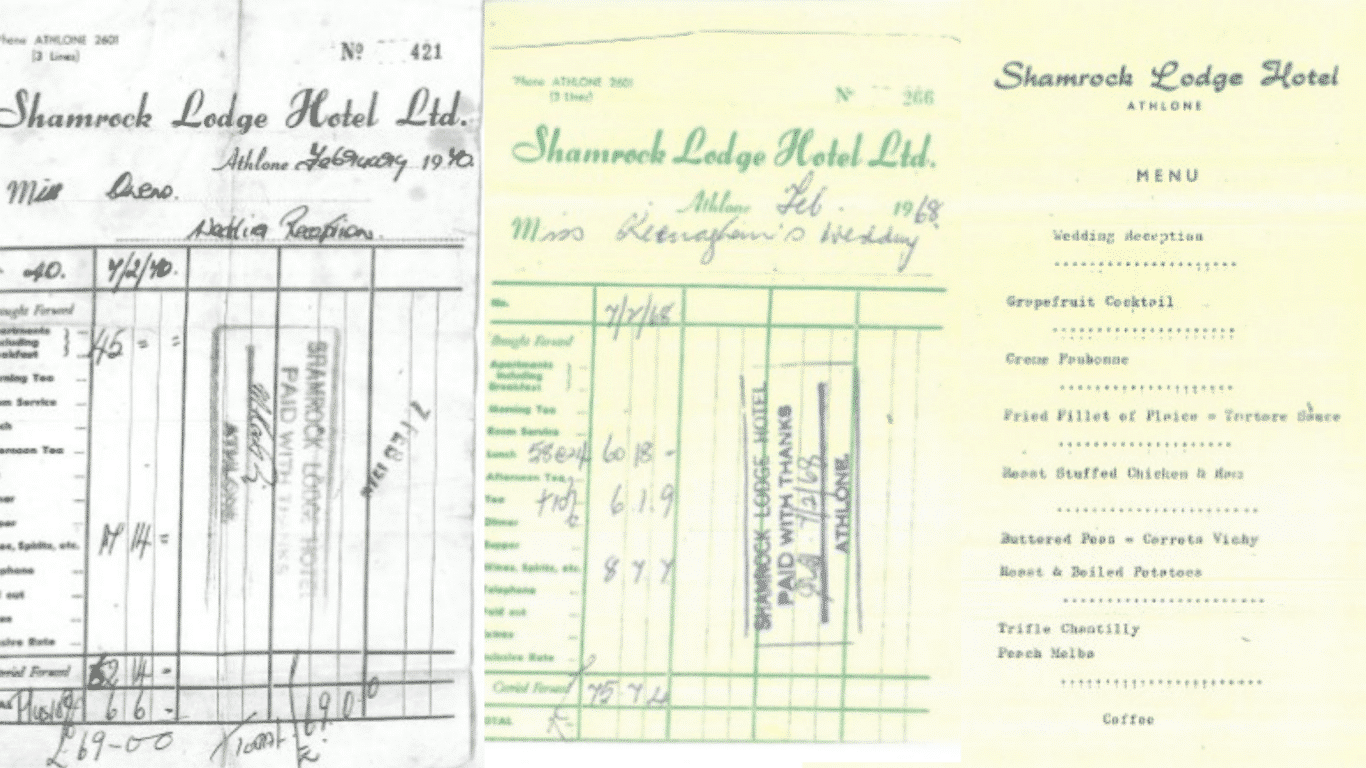 Phone ATHLONE 2601
(3 Lines)
Nº 421
Shamrock Lodge Hotel Ltd.
Athlone February 1970.
Miss
Wedding Reception.
40. 7/2/70.
ought Forward
artments
cluding
eakfast
45 = =
rning Tea
om Service
ch
ernoon Tea
ner
per
es, Spirits, etc. 14 =
phone
out
es
sive Rate
rried Forward 62 14 -
Plus 10% 6 6 -
£69-00
69.0.0
SHAMROCK LODGE HOTEL
PAID WITH THANKS
ATHLONE
'Phone ATHLONE 2601
(3 Lines)
Nº 266
Shamrock Lodge Hotel Ltd.
Athlone Feb. 1968
Miss Keenaghan's Wedding
No. 7/2/68
Brought Forward
Apartments
including
Breakfast
Morning Tea
Room Service
Lunch 58@21/- 60 18 -
Afternoon Tea
Tea +10% 6.1.9
Dinner
Supper
Wines, Spirits, etc. 8 7 7
Telephone
Paid out
Extras
Inclusive Rate
Carried Forward 75-7-4
TOTAL
SHAMROCK LODGE HOTEL
PAID WITH THANKS
7/2/68
ATHLONE.
Shamrock Lodge Hotel
ATHLONE
MENU
Wedding Reception
Grapefruit Cocktail
Creme Paubonne
Fried Fillet of Plaice - Tartare Sauce
Roast Stuffed Chicken & Ham
Buttered Peas - Carrots Vichy
Roast & Boiled Potatoes
Trifle Chantilly
Peach Melba
Coffee